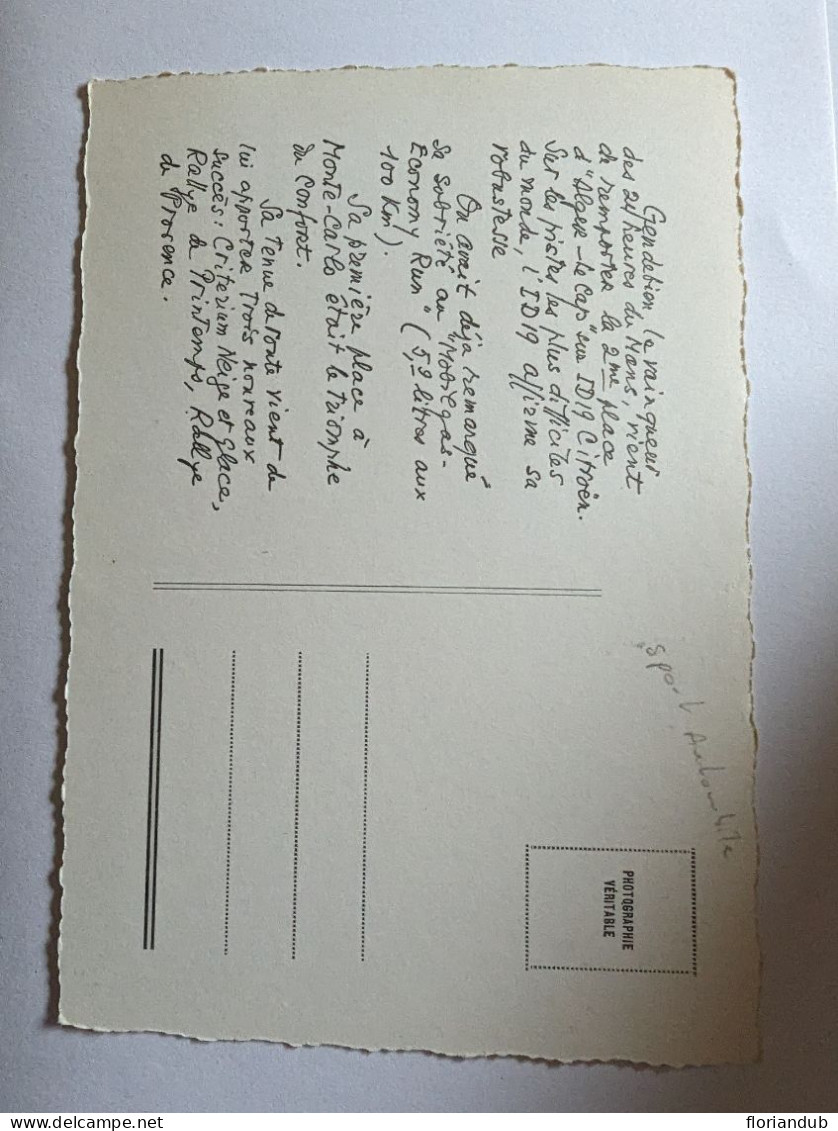 Gendebien le vainqueur
des 24 heures du Mans, vient
de remporter la 2me place
d'"Alger-le Cap" sur ID19 Citroën.
Sur les pistes les plus difficiles
du monde, l'ID19 affirme sa
robustesse
On avait déja remarqué
sa sobriété au "Mobilgas-
Economy Run" (5,9 litres aux
100 Km).
Sa première place à
Monte-Carlo était le triomphe
du confort.
Sa tenue de route vient de
lui apporter trois nouveaux
succès: Criterium Neige et Glace,
Rallye du Printemps, Rallye
de Provence.
Sport Automobile
PHOTOGRAPHIE
VÉRITABLE
delcampe.net
floriandub